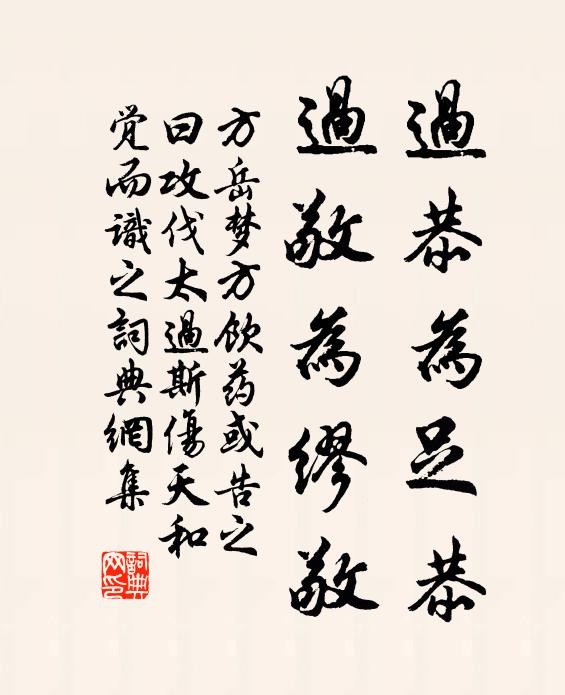 過恭為足恭
過敬為繆敬
方岳梦方飲药或告之
曰攻伐太過斯傷天和
觉而識之詞典網集
詞典
网印